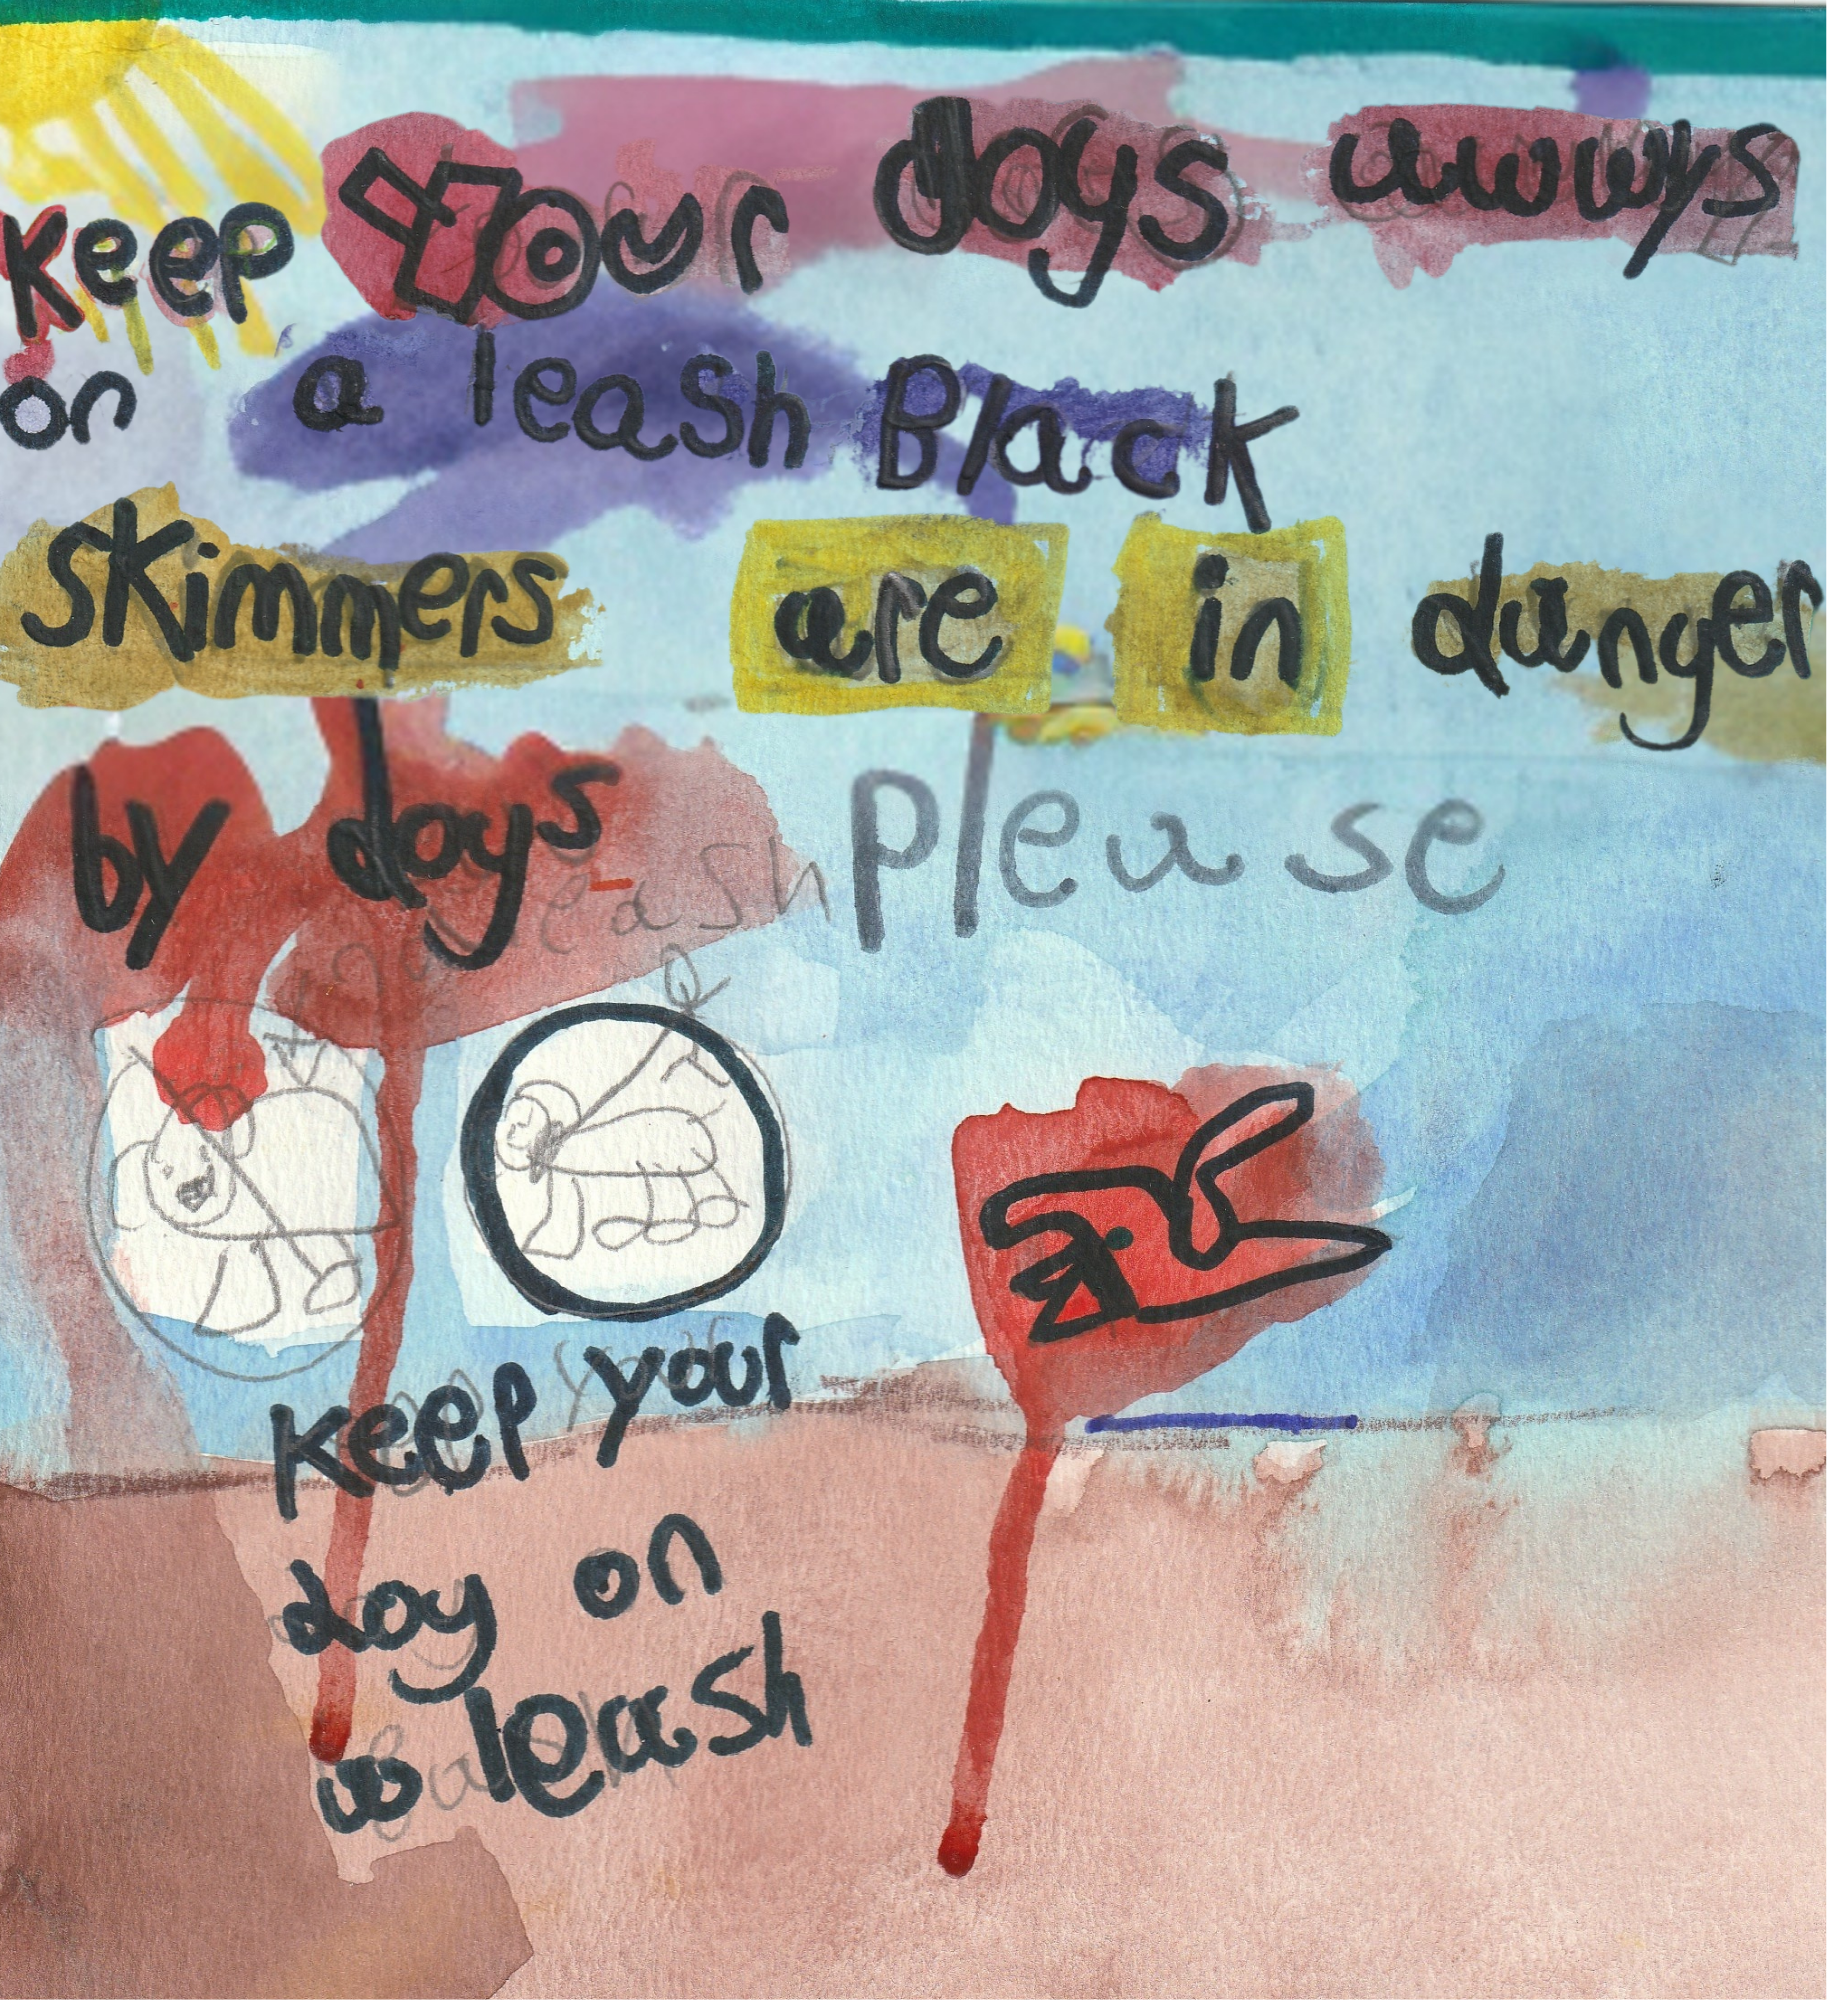 Keep Your dogs awwys
on a leash Black
skimmers are in danger
by dogs please
leash
Keep your
dog on
a leash